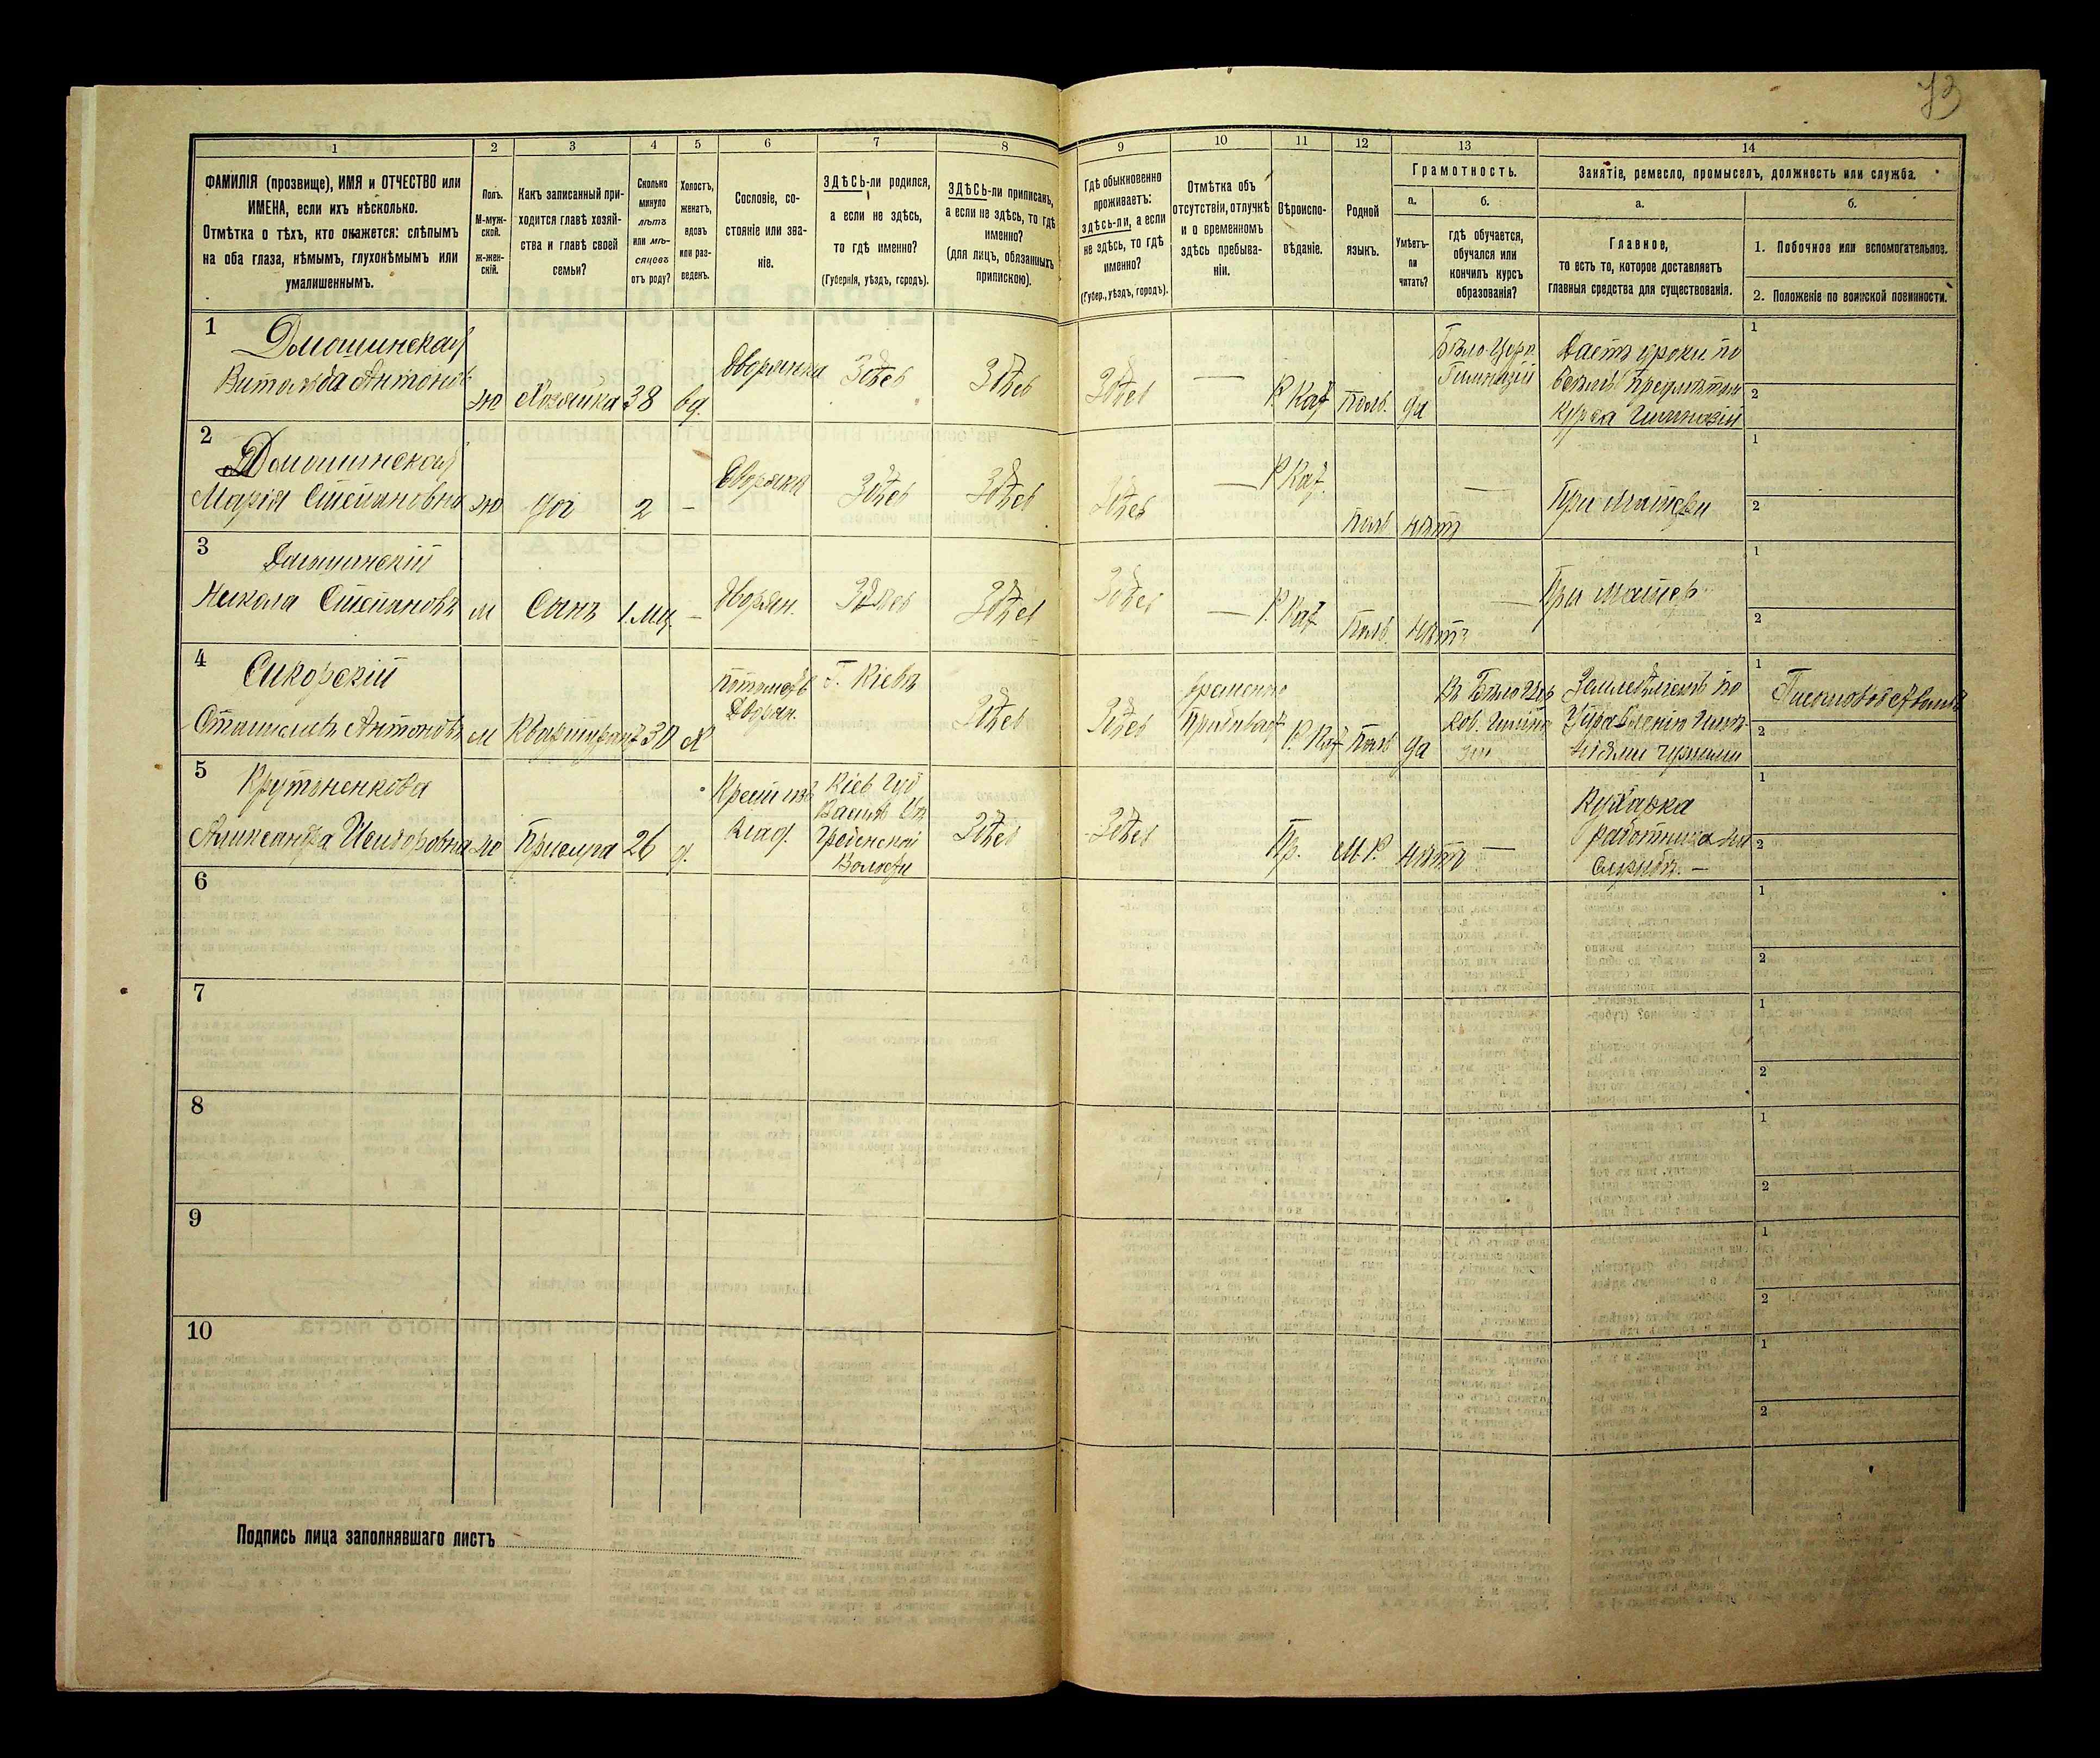 73
1 2 3 4 5 6 7 8 9 10 11 12 13 14
ФАМИЛІЯ (прозвище), ИМЯ и ОТЧЕСТВО или
ИМЕНА, если ихъ нѣсколько.
Отмѣтка о тѣхъ, кто окажется: слѣпымъ
на оба глаза, нѣмымъ, глухонѣмымъ или
умалишеннымъ.
Полъ.
М-муж-
ской.
Ж-жен-
скій.
Какъ записанный при-
ходится главѣ хозяй-
ства и главѣ своей
семьи?
Сколько
минуло
лѣтъ
или мѣ-
сяцевъ
отъ роду?
Холостъ,
женатъ,
вдовъ
или раз-
веденъ.
Сословіе, со-
стояніе или зва-
ніе.
ЗДѢСЬ-ли родился,
а если не здѣсь,
то гдѣ именно?
(Губернія, уѣздъ, городъ).
ЗДѢСЬ-ли приписанъ,
а если не здѣсь, то гдѣ
именно?
(для лицъ, обязанныхъ
припискою).
Гдѣ обыкновенно
проживаетъ:
здѣсь-ли, а если
не здѣсь, то гдѣ
именно?
(Губер., уѣздъ, городъ).
Отмѣтка объ
отсутствіи, отлучкѣ
и о временномъ
здѣсь пребыва-
ніи.
Вѣроиспо-
вѣданіе.
Родной
языкъ.
Грамотность.
а.
Умѣетъ-
ли
читать?
б.
гдѣ обучается,
обучался или
кончилъ курсъ
образованія?
Занятіе, ремесло, промыселъ, должность или служба.
а.
Главное,
то есть то, которое доставляетъ
главныя средства для существованія.
б.
1. Побочное или вспомогательное.
2. Положеніе по воинской повинности.
1
Домашинская
Антонов
Ж Хозяйка 38 вд.
Дворянка Здѣсь Здѣсь Здѣсь — Р. Кат Поль. да
Бѣло-Церк.
Гимназіи
Даетъ уроки по
всѣмъ предметам
курса Гимназіи
1
2
2
Домашинская
Марія Степановна Ж дочь 2 —
Дворянка Здѣсь Здѣсь Здѣсь — Р. Кат Поль нѣтъ —
При матери
1
2
3
Домашинскій
Степановъ М Сынъ 1 мц. —
Дворян. Здѣсь Здѣсь Здѣсь — Р. Кат Поль. нѣтъ —
При матер.
1
2
4
Сикорскій
Станиславъ Антоновъ М Квартирант 30 Х
Потомств
Дворян.
Г. Кіевъ
Здѣсь Здѣсь
временно
Р. Кат Поль да
Въ Бѣлоцер
ков. Гимна
зіи
по
Управленію
1
2
5
Крутоненкова
Александра Ж Прислуга 26 д.
Крестьян
Кіев Губ
Васильк Уѣ
Гребенской
Волости
Здѣсь Здѣсь Пр. М. Р. нѣтъ —
Кухарка
1
2
6
1
2
7
1
2
8
1
2
9
1
2
10
1
2
Подпись лица заполнявшаго листъ